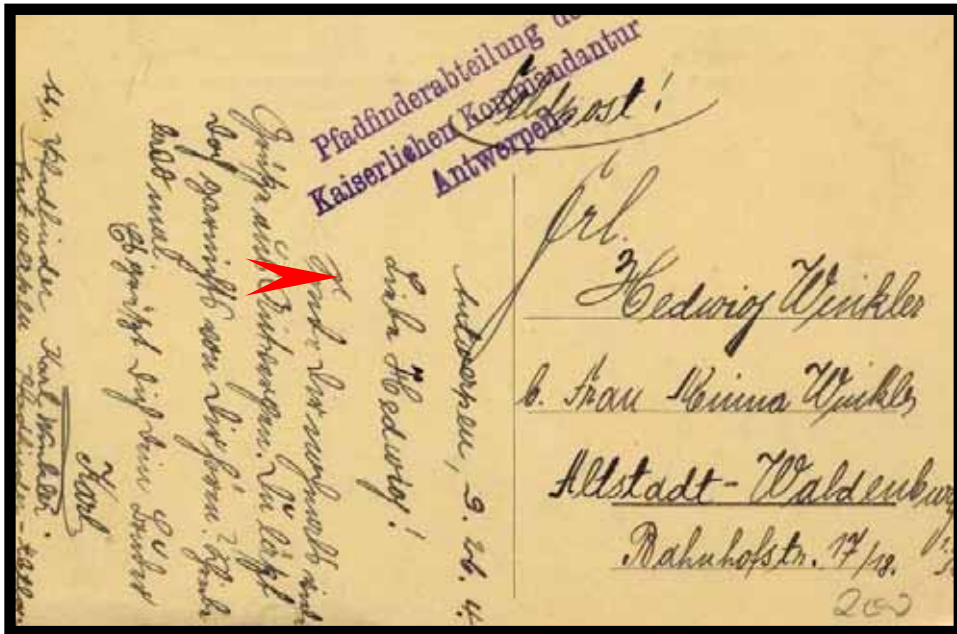 Pfadfinderabteilung de
Kaiserlichen Kommandantur
Antwerpen
Feldpost!
Frl.
Hedwig Winkler
b. Frau Minna Winkler
Altstadt-Waldenburg
Bahnhofstr. 17/18.
200
Antwerpen, 9. 26. 4.
Liebe Hedwig!
Sende Dir nochmals viele
Grüße aus. Du läßt
Doch garnichts von Dir hören? Schreibe
bald mal
Es grüßt Dich Dein Bruder
Karl
Pfadfinder Karl Winkler.
Antwerpen Pfadfinder-